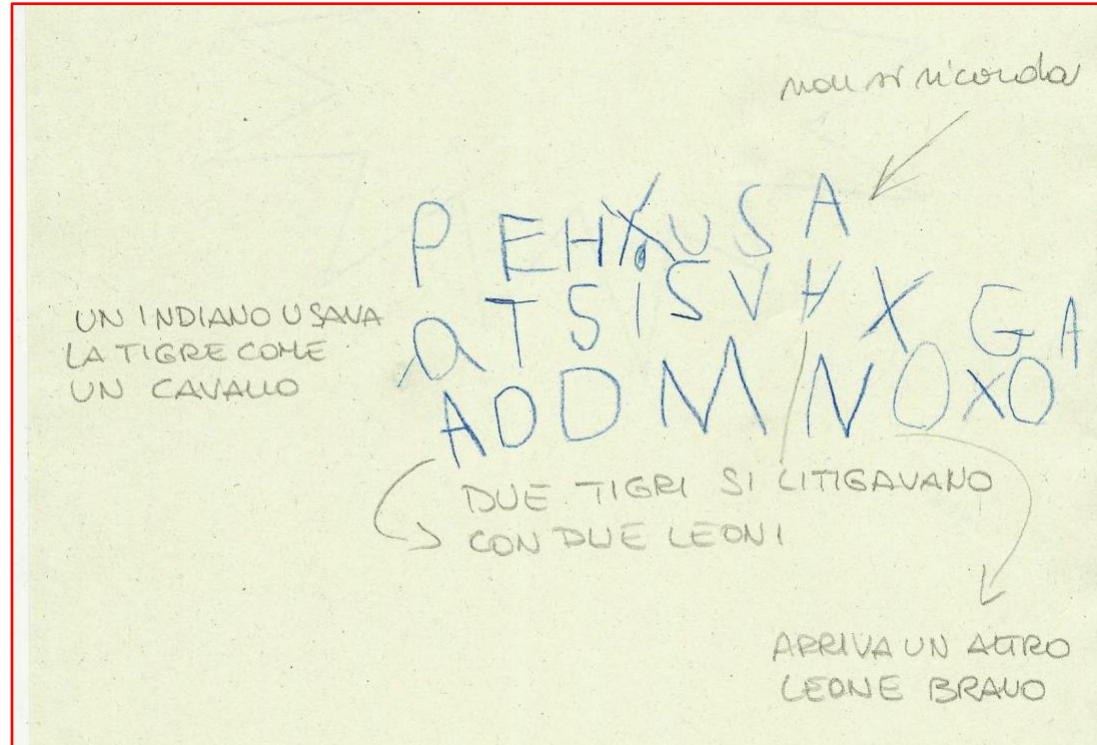 non si ricorda
P EHXUSA
QTSISVAX GA
ADDMNOXO
UN INDIANO USAVA
LA TIGRE COME
UN CAVALLO
DUE TIGRI SI LITIGAVANO
CON DUE LEONI
ARRIVA UN ALTRO
LEONE BRAVO